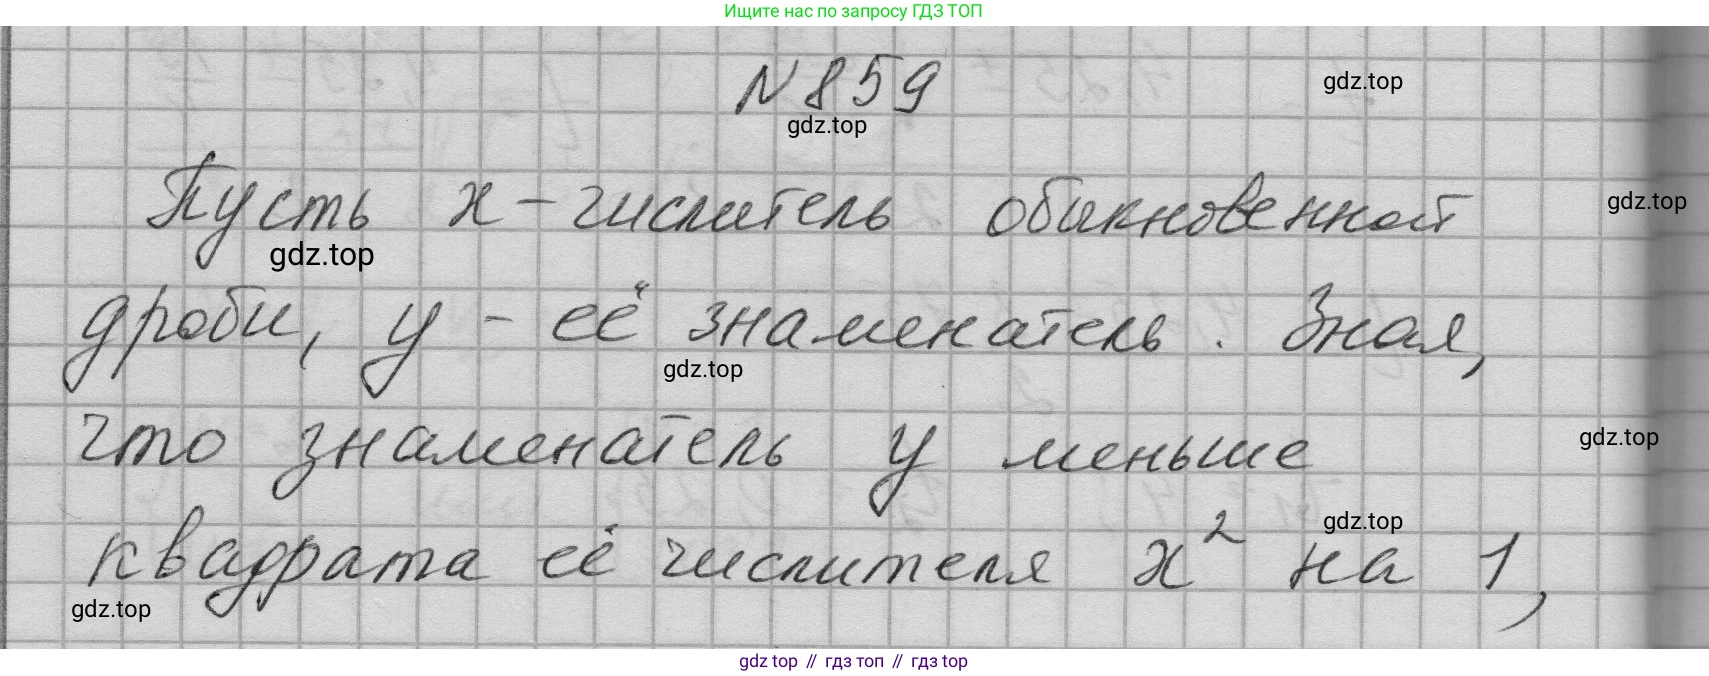 Ищите нас по запросу ГДЗ ТОП
N 859
gdz.top
gdz.top
Пусть x - числитель обыкновенной
gdz.top
gdz.top
дроби, y - её знаменатель. Зная,
gdz.top
что знаменатель y меньше
gdz.top
квадрата её числителя x² на 1,
gdz.top
gdz.top
gdz top // гдз топ // gdz top